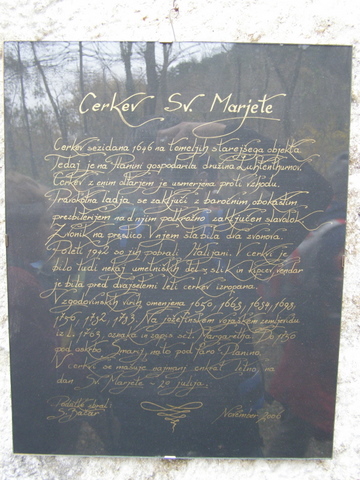 Cerkev Sv. Marjete
Cerkev sezidana 1646 na temeljih starejšega objekta.
Tedaj je na Planini gospodarila družina Lichtenthurnov.
Cerkev z enim oltarjem je usmerjena proti vzhodu.
Pravokotna ladja se zaključi z baročnim, obokanim
prezbiterijem, nad njim polkrožno zaključen slavolok.
Zvonik na preslico. V njem sta bila dva zvonova.
Poleti 1922 so jih pobrali Italijani. V cerkvi je
bilo tudi nekaj umetniških del - slik in kipcev, vendar
je bila pred dvajsetimi leti cerkev izropana.
V zgodovinskih virih omenjena 1650, 1663,
1752, 1753. Na jožefinskem vojaškem zemljevidu
iz l. 1763, oznaka je zapis oct. Margaretha. Do 1750
pod nato pod faro Planina.
V cerkvi se mašuje najmanj enkrat letno, na
dan Sv. Marjete - 20 julija.
S. Bazar November 2006